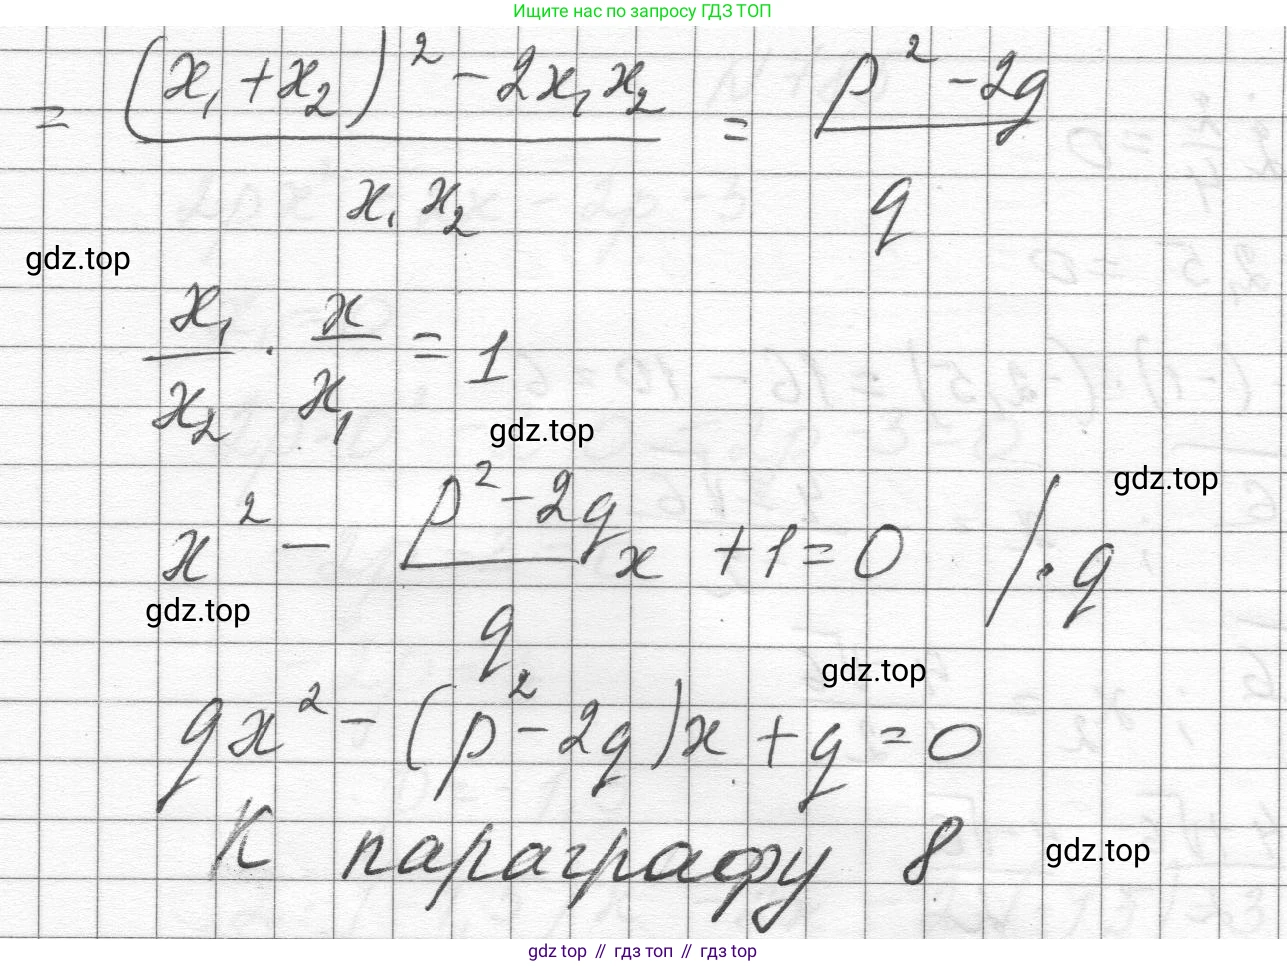 Ищите нас по запросу ГДЗ ТОП
= ((x₁ + x₂)² - 2x₁x₂) / (x₁x₂) = (p² - 2q) / q
gdz.top
x₁/x₂ · x/x₁ = 1
gdz.top
gdz.top
x² - (p² - 2q)/q x + 1 = 0 / · q
gdz.top
gdz.top
qx² - (p² - 2q)x + q = 0
К параграфу 8
gdz.top
gdz top // гдз топ // gdz top